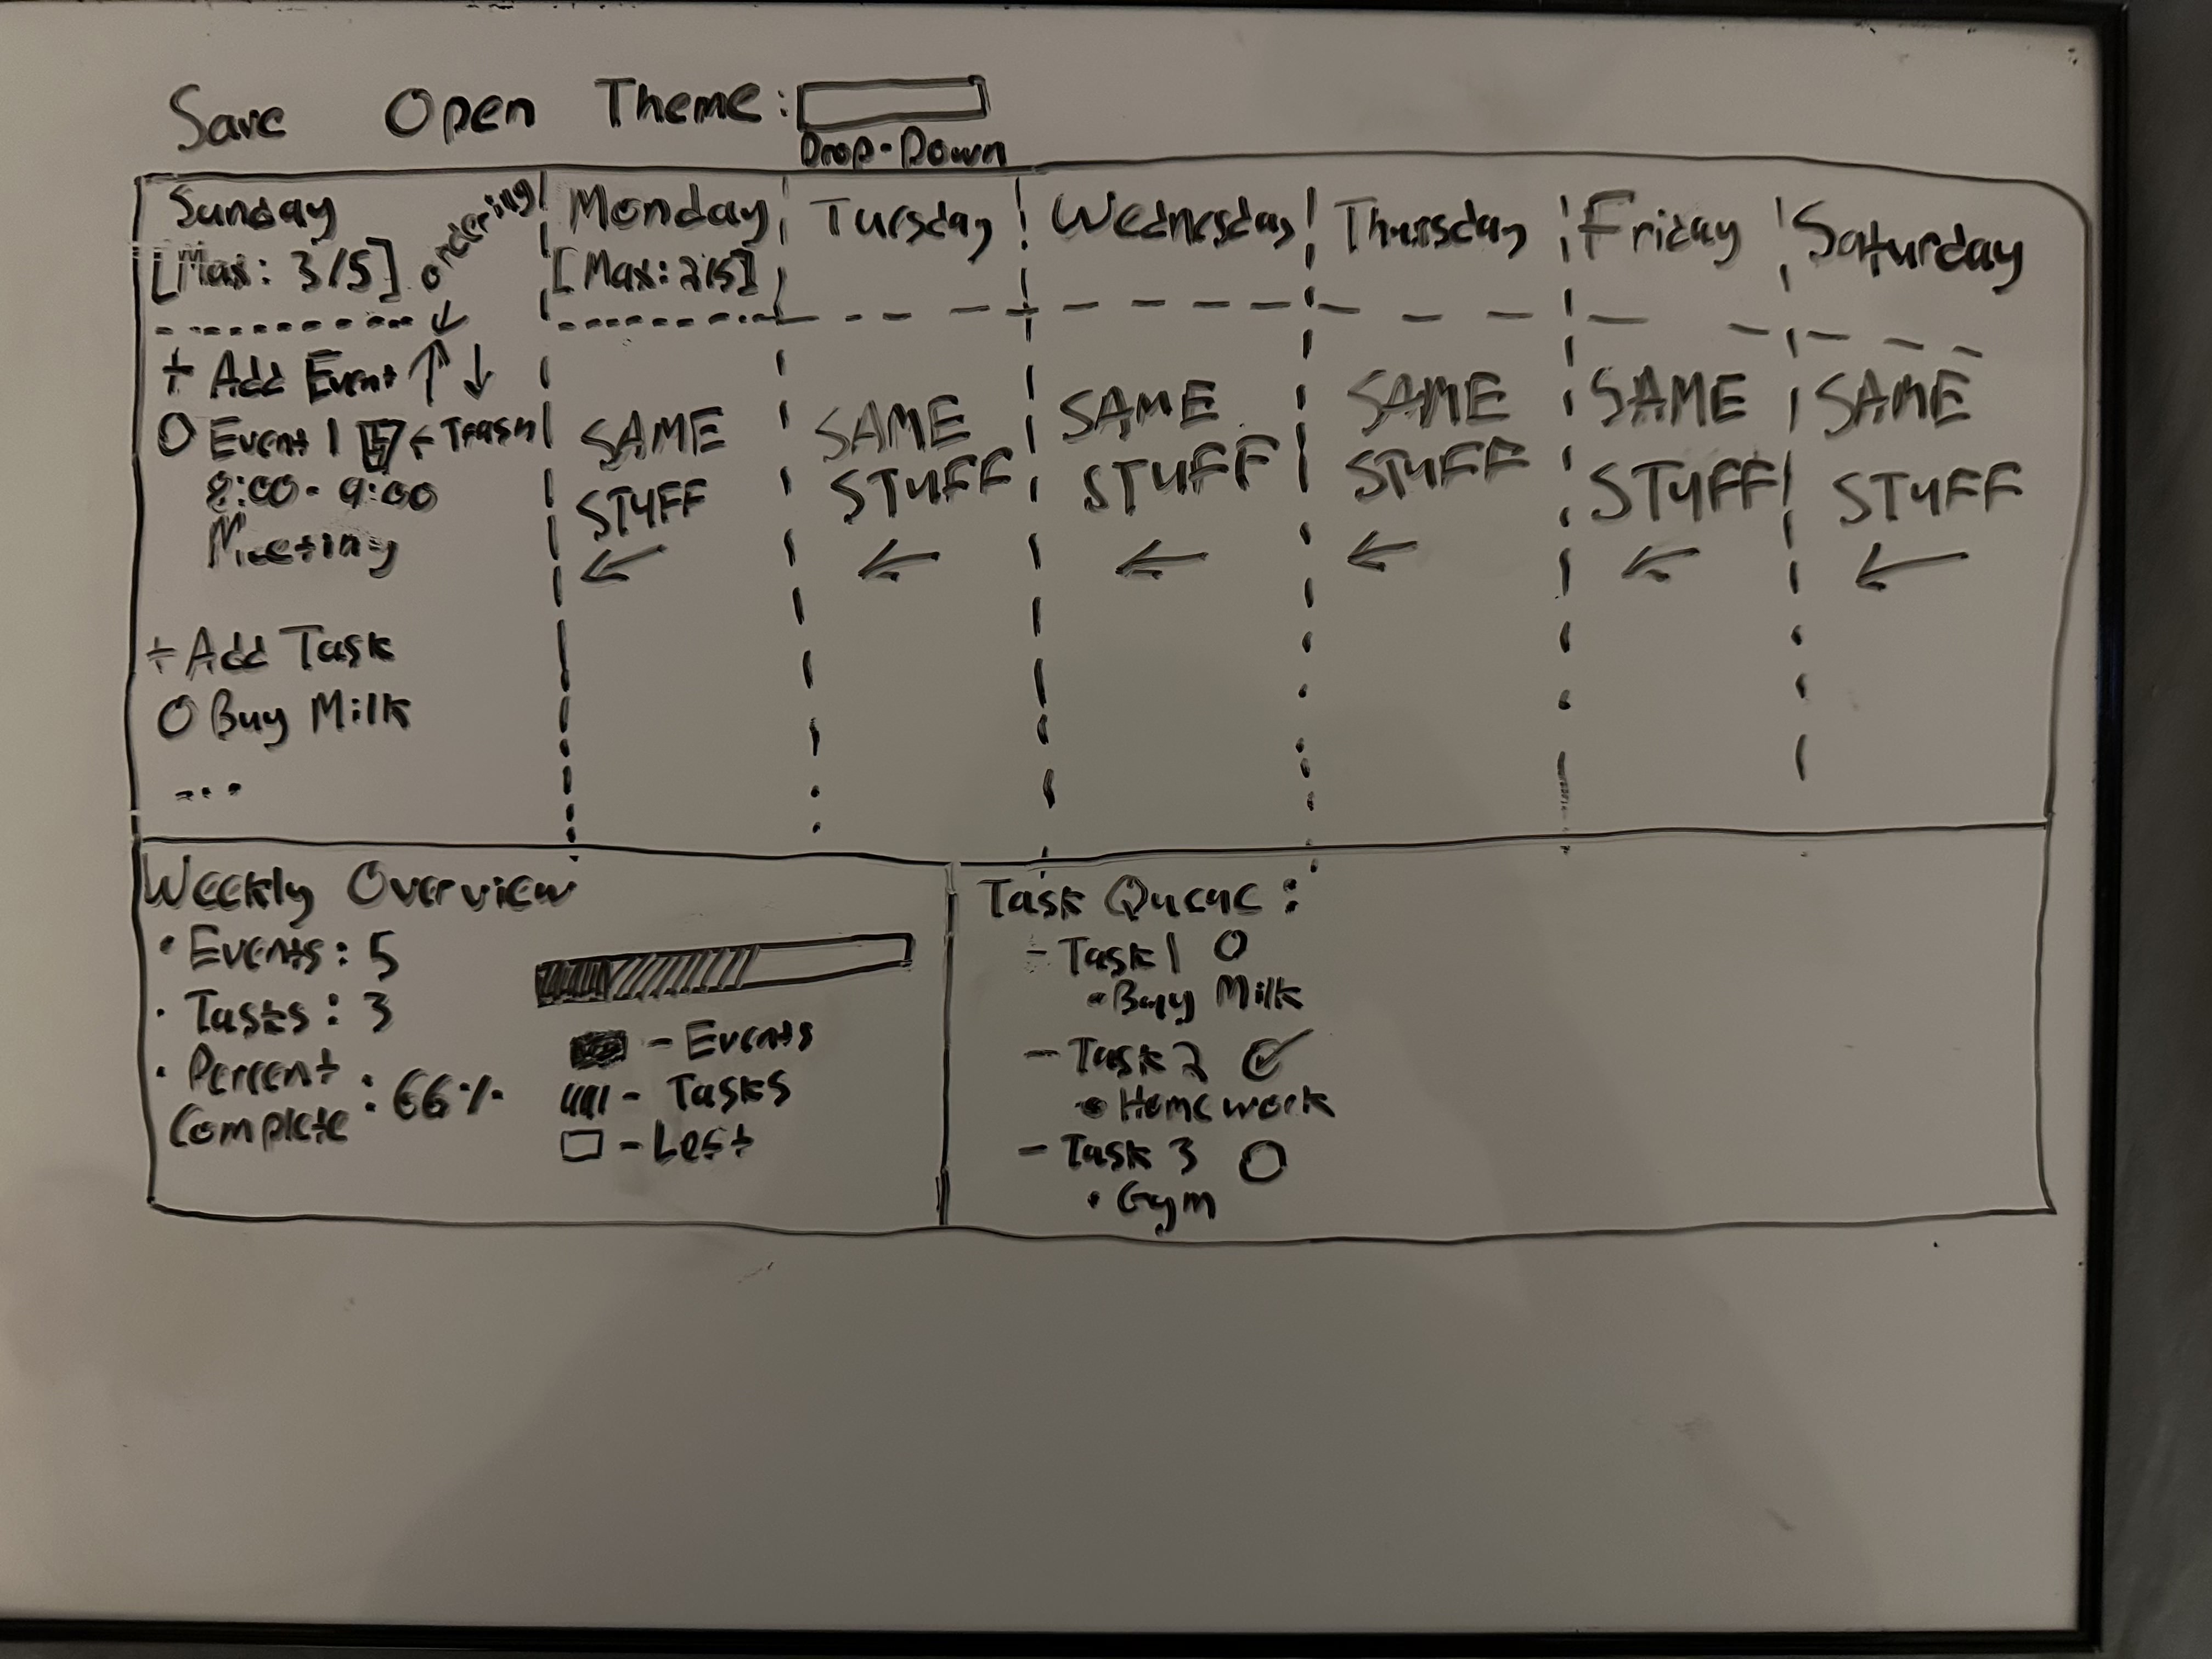 Save Open Theme:
Drop-Down
Sunday
[Max: 3/5]
ordering
↓
+ Add Event ↑ ↓
O Event 1 ← Trash
8:00 - 9:00
Meeting
+ Add Task
O Buy Milk
...
Monday
[Max: 2/5]
SAME
STUFF
←
Tuesday
SAME
STUFF
←
Wednesday
SAME
STUFF
←
Thursday
SAME
STUFF
←
Friday
SAME
STUFF
←
Saturday
SAME
STUFF
←
Weekly Overview
• Events: 5
• Tasks: 3
• Percent
Complete : 66%
- Events
- Tasks
- Left
Task Queue:
- Task 1 O
• Buy Milk
- Task 2 ✓
• Homework
- Task 3 O
• Gym